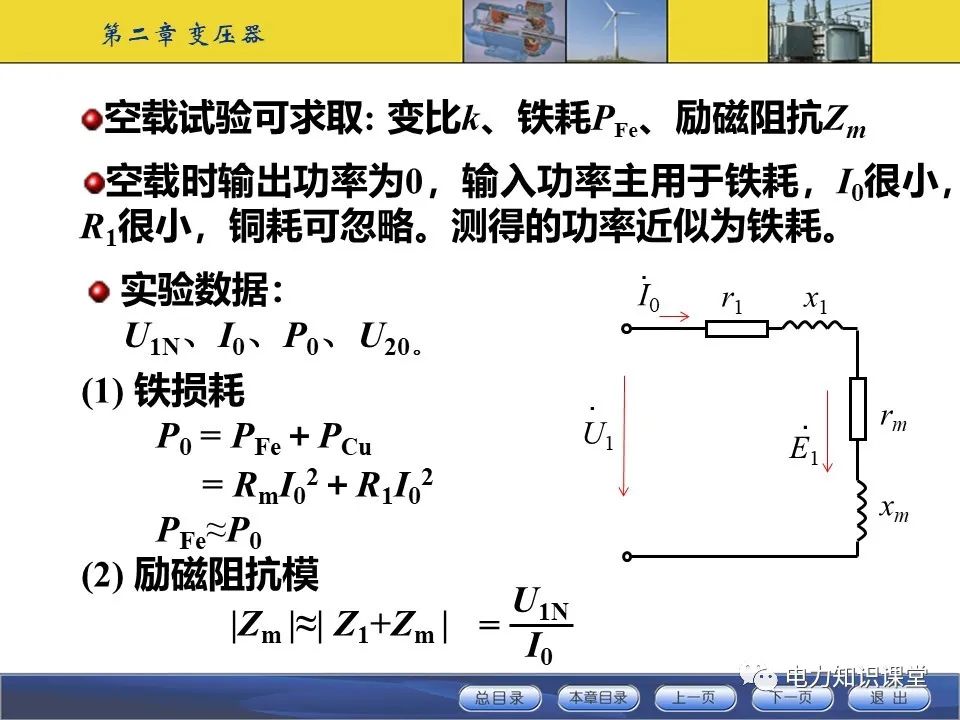 第二章 变压器
空载试验可求取: 变比k、铁耗PFe、励磁阻抗Zm
空载时输出功率为0，输入功率主用于铁耗，I0很小，
R1很小，铜耗可忽略。测得的功率近似为铁耗。
实验数据：
U1N、I0、P0、U20。
(1) 铁损耗
P0 = PFe + PCu
= RmI0² + R1I0²
PFe≈P0
(2) 励磁阻抗模
|Zm |≈| Z1+Zm | = U1N
I0
İ0 r1 x1
U̇1
Ė1
rm
xm
电力知识课堂
总目录 本章目录 上一页 下一页 退 出